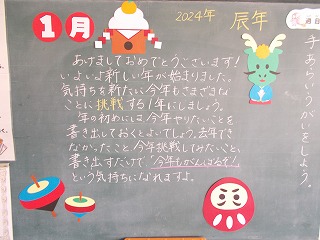 1月
2024年 辰年
あけましておめでとうございます!
いよいよ新しい年が始まりました。
気持ちを新たに今年もさまざまな
ことに挑戦する1年にしましょう。
年の初めには今年やりたいことを
書き出しておくとよいでしょう。去年で
きなかったこと、今年挑戦してみたいこと、
書き出すだけで「今年もがんばるぞ!」
という気持ちになれますよ。
手あらいうがいをしよう。